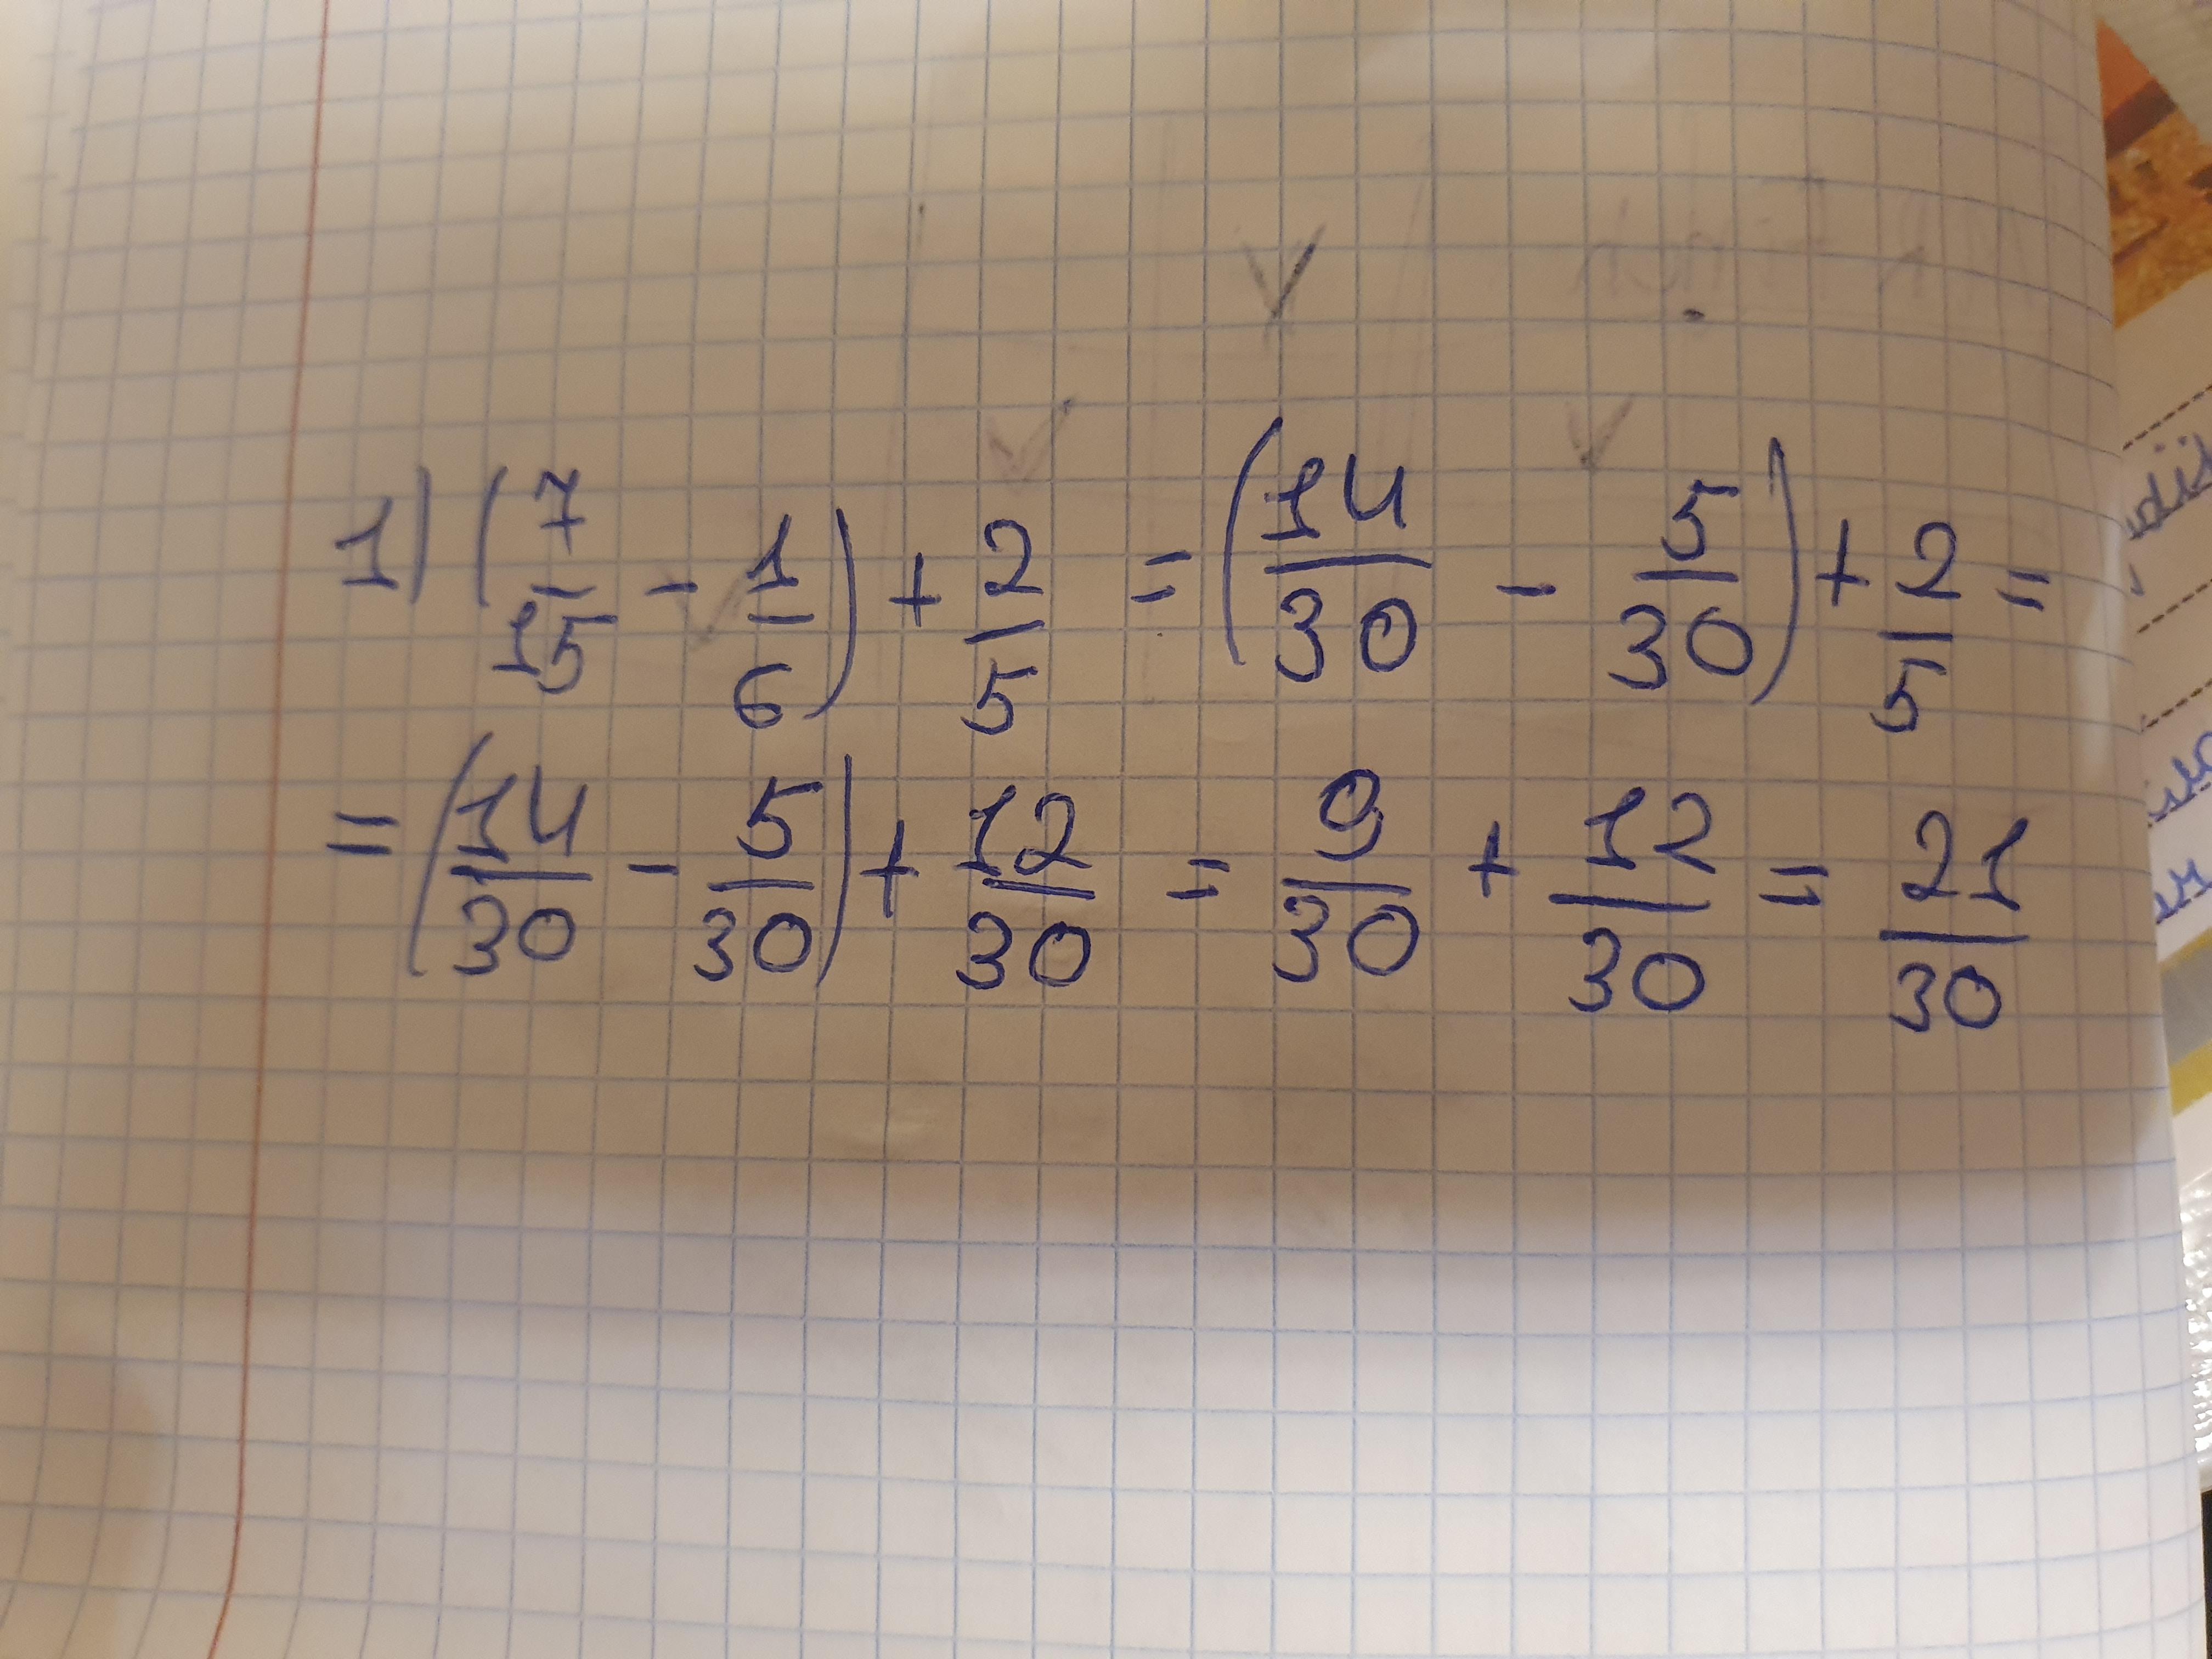 1) (7/15 - 1/6) + 2/5 = (14/30 - 5/30) + 2/5 =
= (14/30 - 5/30) + 12/30 = 9/30 + 12/30 = 21/30